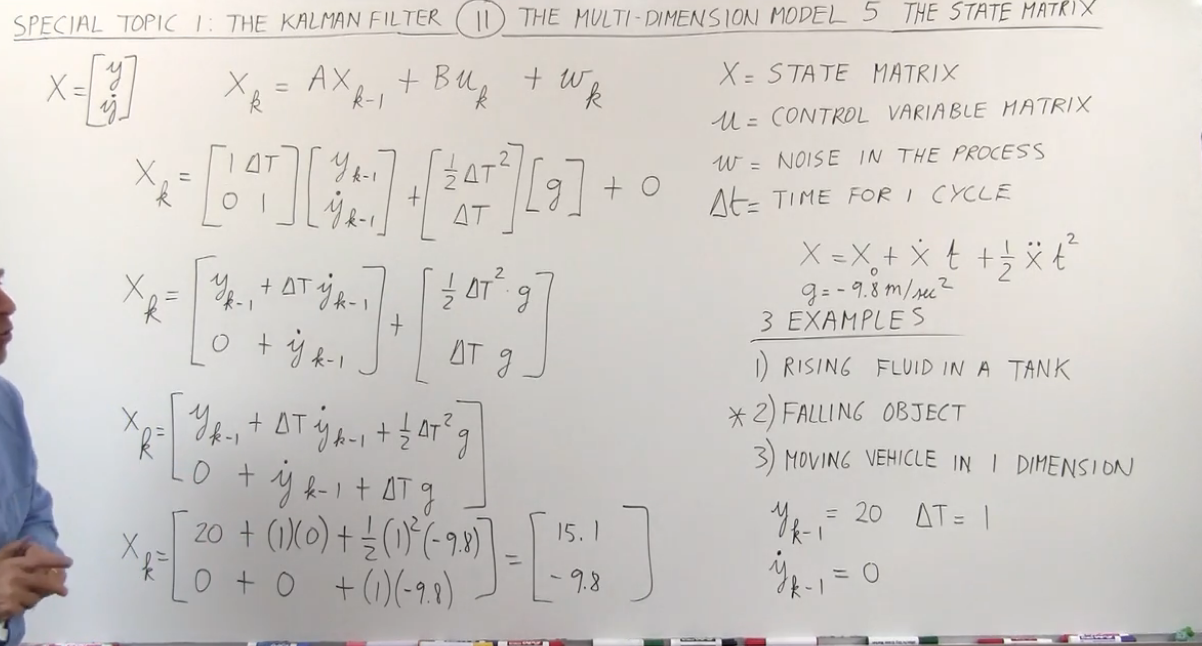 SPECIAL TOPIC 1: THE KALMAN FILTER (11) THE MULTI-DIMENSION MODEL 5 THE STATE MATRIX
X = [y; ẏ]
X_k = AX_{k-1} + Bu_k + w_k
X_k = [1 ΔT; 0 1] [y_{k-1}; ẏ_{k-1}] + [½ ΔT²; ΔT] [g] + 0
X_k = [y_{k-1} + ΔT ẏ_{k-1}; 0 + ẏ_{k-1}] + [½ ΔT² · g; ΔT g]
X_k = [y_{k-1} + ΔT ẏ_{k-1} + ½ ΔT² g; 0 + ẏ_{k-1} + ΔT g]
X_k = [20 + (1)(0) + ½ (1)² (-9.8); 0 + 0 + (1)(-9.8)] = [15.1; -9.8]
X = STATE MATRIX
u = CONTROL VARIABLE MATRIX
w = NOISE IN THE PROCESS
Δt = TIME FOR 1 CYCLE
X = X₀ + ẋ t + ½ ẍ t²
g = -9.8 m/sec²
3 EXAMPLES
1) RISING FLUID IN A TANK
* 2) FALLING OBJECT
3) MOVING VEHICLE IN 1 DIMENSION
y_{k-1} = 20 ΔT = 1
ẏ_{k-1} = 0